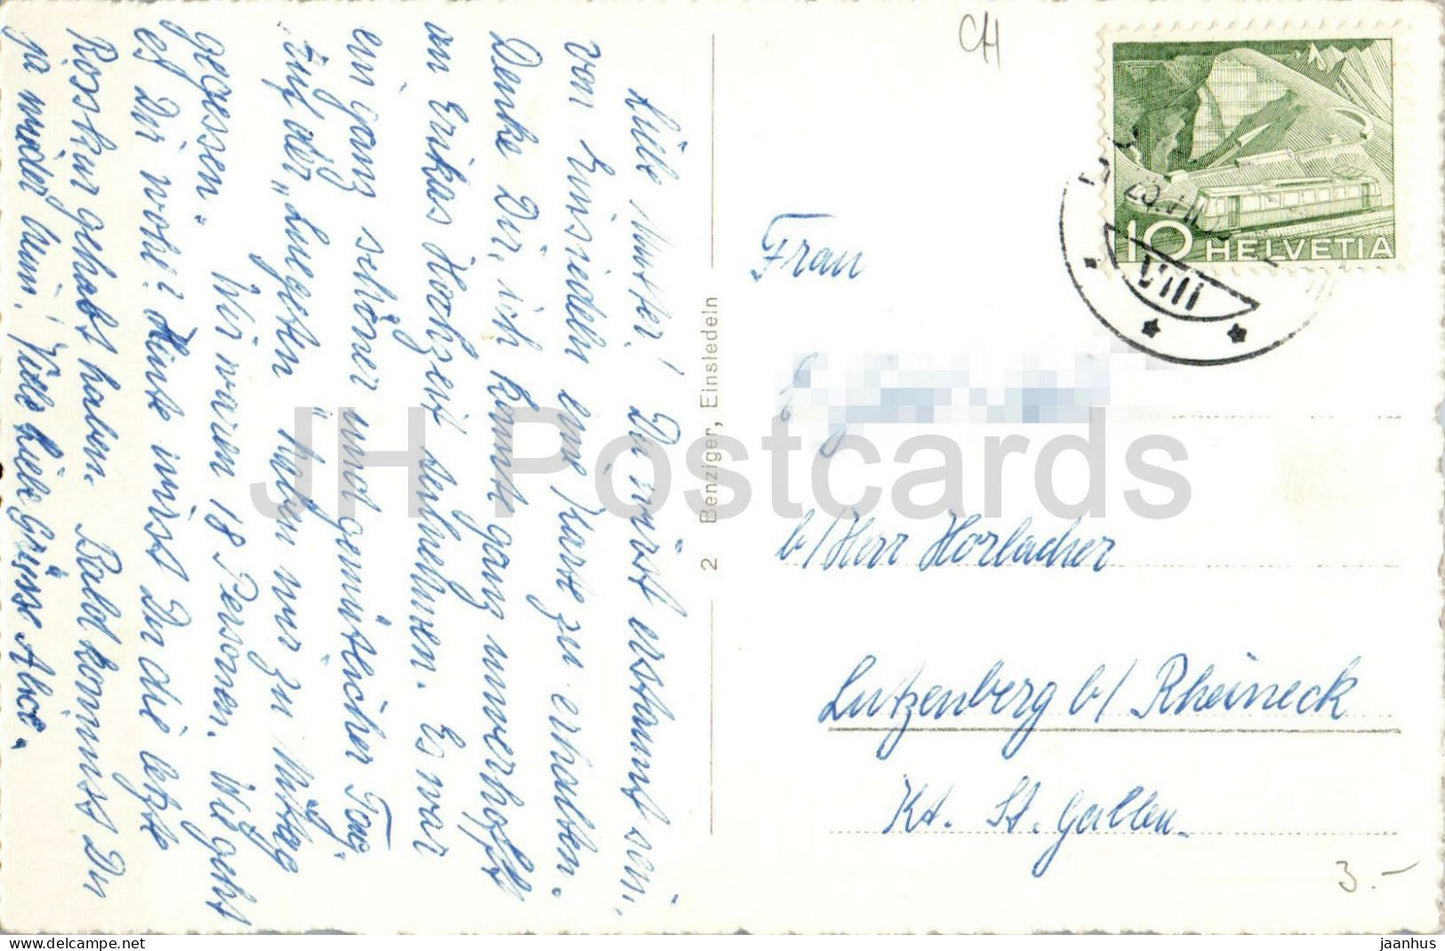 Liebe Mutter! Du wirst erstaunt sein,
von Einsiedeln eine Karte zu erhalten.
Denke Dir, ich kann ganz unverhofft
an Erikas Hochzeit teilnehmen. Es war
ein ganz schöner und gemütlicher Tag.
Auf der „Luegeten" haben wir zu Mittag
gegessen.
Wir waren 18 Personen. Wie geht
es Dir wohl? Heute wirst Du die letzte
Rosskur gehabt haben. Bald kommst Du
ja wieder heim. Viele liebe Grüsse Alice.
2 Benziger, Einsiedeln
CH
10 HELVETIA
VIII
Frau
b/Herr Horlacher
Lutzenberg b/ Rheineck
Kt. St. Gallen.
3.-
JH Postcards
www.delcampe.net
jaanhus